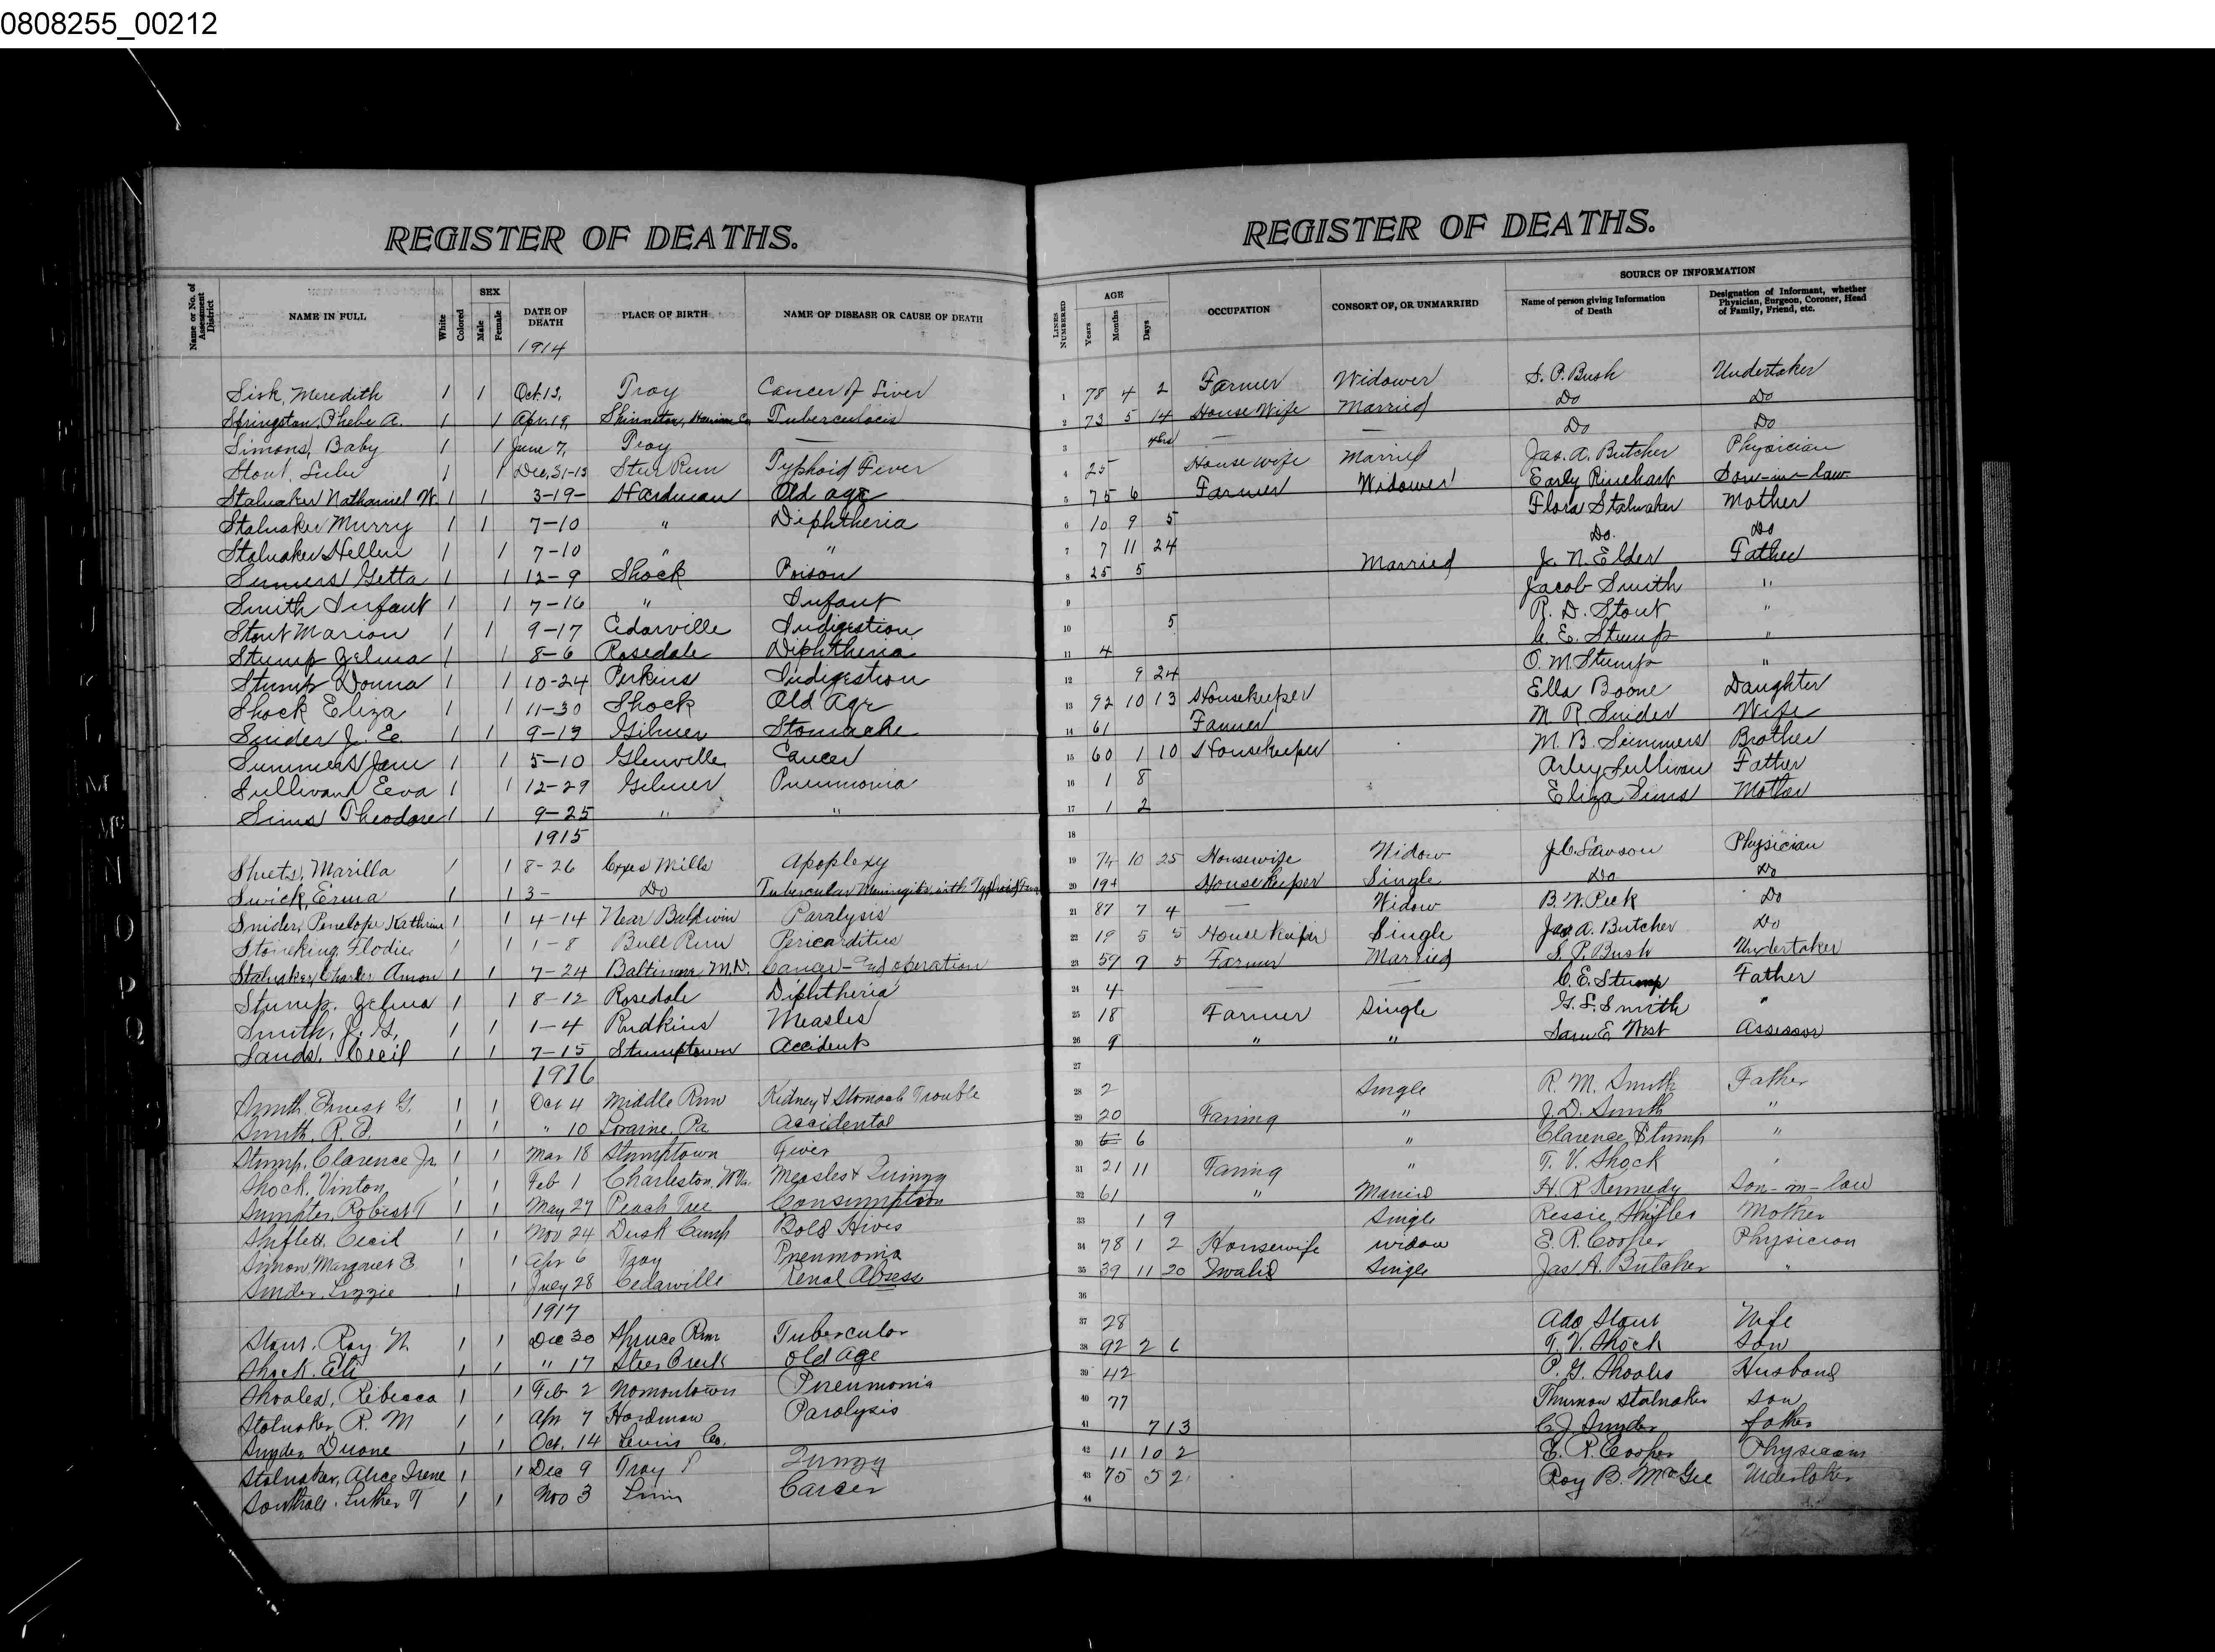 0808255_00212
REGISTER OF DEATHS.
Name or No. of Assessment District
NAME IN FULL
White
Colored
SEX
Male
Female
DATE OF DEATH
PLACE OF BIRTH
NAME OF DISEASE OR CAUSE OF DEATH
1914
Sisk, Meredith 1 1 Oct. 13, Troy Cancer of Liver
Springston, Phebe A. 1 1 Apr. 19, Shinnston, Harrison Co. Tuberculocis
Simons, Baby 1 1 June 7, Troy —
Stout, Lulu 1 1 Dec. 31-13 Typhoid Fever
Stalnaker Nathaniel W. 1 1 3-19- Hardman Old age
Stalnaker Murry 1 1 7-10 " Diphtheria
Stalnaker Hellen 1 1 7-10 " "
Summers Getta 1 1 12-9 Shock Poison
Smith Infant 1 1 7-16 " Infant
Stout Marion 1 1 9-17 Cedarville Indigestion
Stump Zelma 1 1 8-6 Rosedale Diphtheria
Stump Donna 1 1 10-24 Perkins Indigestion
Shock Eliza 1 1 11-30 Shock Old Age
Snider J. Ee 1 1 9-19 Gilmer Stomache
Summers Jane 1 1 5-10 Glenville Cancer
Sullivan Eeva 1 1 12-29 Gilmer Pneumonia
Sims Theodore 1 1 9-25 " "
1915
Sheets, Marilla 1 1 8-26 Coxes Mills Apoplexy
Swick, Erma 1 1 3- Do Tubercular Meningitis with Typhoid Fever
Snider, Penelope Kathrine 1 1 4-14 Near Baldwin Paralysis
Stoneking, Flodie 1 1 1-8 Bull Run Pericarditus
Stalnaker, Charles Amon 1 1 7-24 Baltimore, M.D. Cancer - operation
Stump, Zelma 1 1 8-12 Rosedale Diphtheria
Smith, J. G. 1 1 1-4 Rudkins Measles
Sands, Cecil 1 1 7-15 Stumptown Accident
1916
Smith, Ernest G. 1 1 Oct 4 Middle Run Kidney & Stomach Trouble
Smith, R. E. 1 1 " 10 Loraine, Pa Accidental
Stump, Clarence Jr. 1 1 Mar 18 Stumptown Fiver
Shock, Vinton, 1 1 Feb 1 Charleston, W Va. Measles & Quinzy
Sumpter, Robert T 1 1 May 27 Peach Tree Consumption
Shiflett, Cecil 1 1 Nov 24 Dusk Camp Bold Hives
Simon, Margaret E 1 1 Apr 6 Troy Pneumonia
Snider, Lizzie 1 1 July 28 Cedarville Renal Absess
1917
Stout, Roy N. 1 1 Dec 30 Spruce Run Tubercular
Shock, Eli 1 1 " 17 Steer Creek Old Age
Shoales, Rebecca 1 1 Feb 2 Normantown Pneumonia
Stalnaker, R. M 1 1 Apr 7 Hardman Paralysis
Snyder, Duane 1 1 Oct. 14 Lewis Co.
Stalnaker, Alice Irene 1 1 Dec 9 Troy Quinzy
Southall, Luther T 1 1 Nov 3 Linn Cancer
REGISTER OF DEATHS.
LINES NUMBERED
AGE
Years
Months
Days
OCCUPATION
CONSORT OF, OR UNMARRIED
SOURCE OF INFORMATION
Name of person giving Information of Death
Designation of Informant, whether Physician, Surgeon, Coroner, Head of Family, Friend, etc.
1 78 4 2 Farmer Widower S. P. Bush Undertaker
2 73 5 14 House Wife Married Do Do
3 4 hrs — — Do Do
4 25 House wife Married Jas. A. Butcher Physician
5 75 6 Farmer Widower Early Rinehart Son-in-law
6 10 9 5 Flora Stalnaker Mother
7 7 11 24 Do. Do
8 25 5 Married J. N. Elder Father
9 Jacob Smith "
10 5 R. D. Stout "
11 4 C. E. Stump "
12 9 24 O. M. Stump "
13 92 10 13 Housekeeper Ella Boone Daughter
14 61 Farmer M. R. Snider Wife
15 60 1 10 Housekeeper M. B. Summers Brother
16 1 8 Arley Sullivan Father
17 1 2 Eliza Sims Mother
18
19 74 10 25 Housewife Widow J. C. Lawson Physician
20 19+ House Keeper Single Do Do
21 87 7 4 — Widow B. W. Peck Do
22 19 5 5 House Keeper Single Jas A. Butcher Do
23 59 9 5 Farmer Married S. P. Bush Undertaker
24 4 — — C. E. Stump Father
25 18 Farmer Single G. S. Smith "
26 9 " " Sam E. West Assessor
27
28 2 Single R. M. Smith Father
29 20 Faming " J. D. Smith "
30 6 " Clarence Stump "
31 21 11 Faming " T. V. Shock "
32 61 " Married H. R Kennedy Son-in-law
33 1 9 Single Ressie Shifler Mother
34 78 1 2 Housewife Widow E. R. Cooper Physician
35 39 11 20 Invalid Single Jas A. Butcher "
36
37 28 Ada Stout Wife
38 92 2 6 T. V. Shock Son
39 42 P. G. Shoales Husband
40 77 Thurman Stalnaker Son
41 7 13 C. J. Snyder father
42 11 10 2 E. R. Cooper Physician
43 75 5 2 Roy B. McGee Undertaker
44